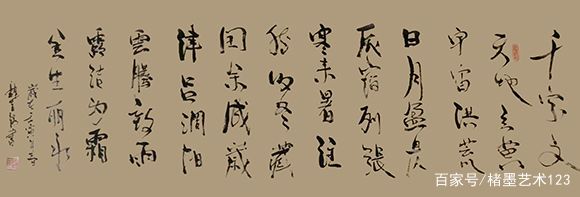 千字文
天地玄黄
宇宙洪荒
日月盈昃
辰宿列張
寒来暑往
秋收冬藏
閏余成歲
律吕调阳
雲騰致雨
露结为霜
金生丽水
百家号/楮墨艺术123